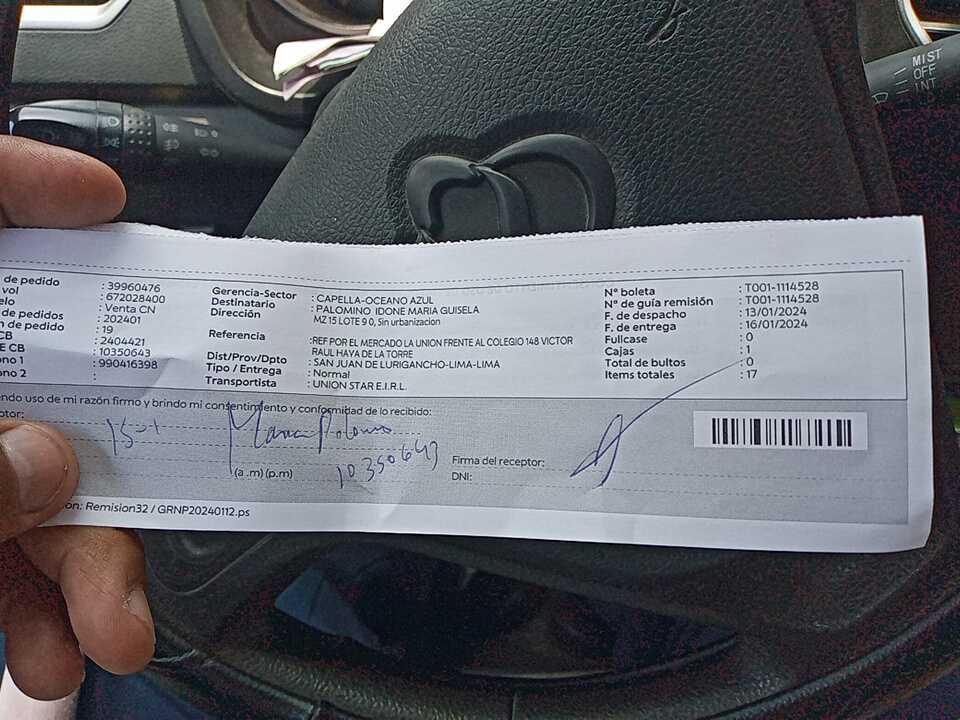 MIST
OFF
INT
de pedido : 39960476
vol : 672028400
elo : Venta CN
de pedidos : 202401
n de pedido : 19
CB : 2404421
E CB : 10350643
ono 1 : 990416398
ono 2 :
Gerencia-Sector : CAPELLA-OCEANO AZUL
Destinatario : PALOMINO IDONE MARIA GUISELA
Dirección MZ 15 LOTE 9 0, Sin urbanizacion
Referencia :REF POR EL MERCADO LA UNION FRENTE AL COLEGIO 148 VICTOR
RAUL HAYA DE LA TORRE
Dist/Prov/Dpto : SAN JUAN DE LURIGANCHO-LIMA-LIMA
Tipo / Entrega : Normal
Transportista : UNION STAR E.I.R.L.
N° boleta : T001-1114528
N° de guía remisión : T001-1114528
F. de despacho : 13/01/2024
F. de entrega : 16/01/2024
Fullcase : 0
Cajas : 1
Total de bultos : 0
Items totales : 17
endo uso de mi razón firmo y brindo mi consentimiento y conformidad de lo recibido:
ptor:
15-1 Maria Palomino
(a .m) (p.m) 10350643
Firma del receptor:
DNI:
on: Remision32 / GRNP20240112.ps